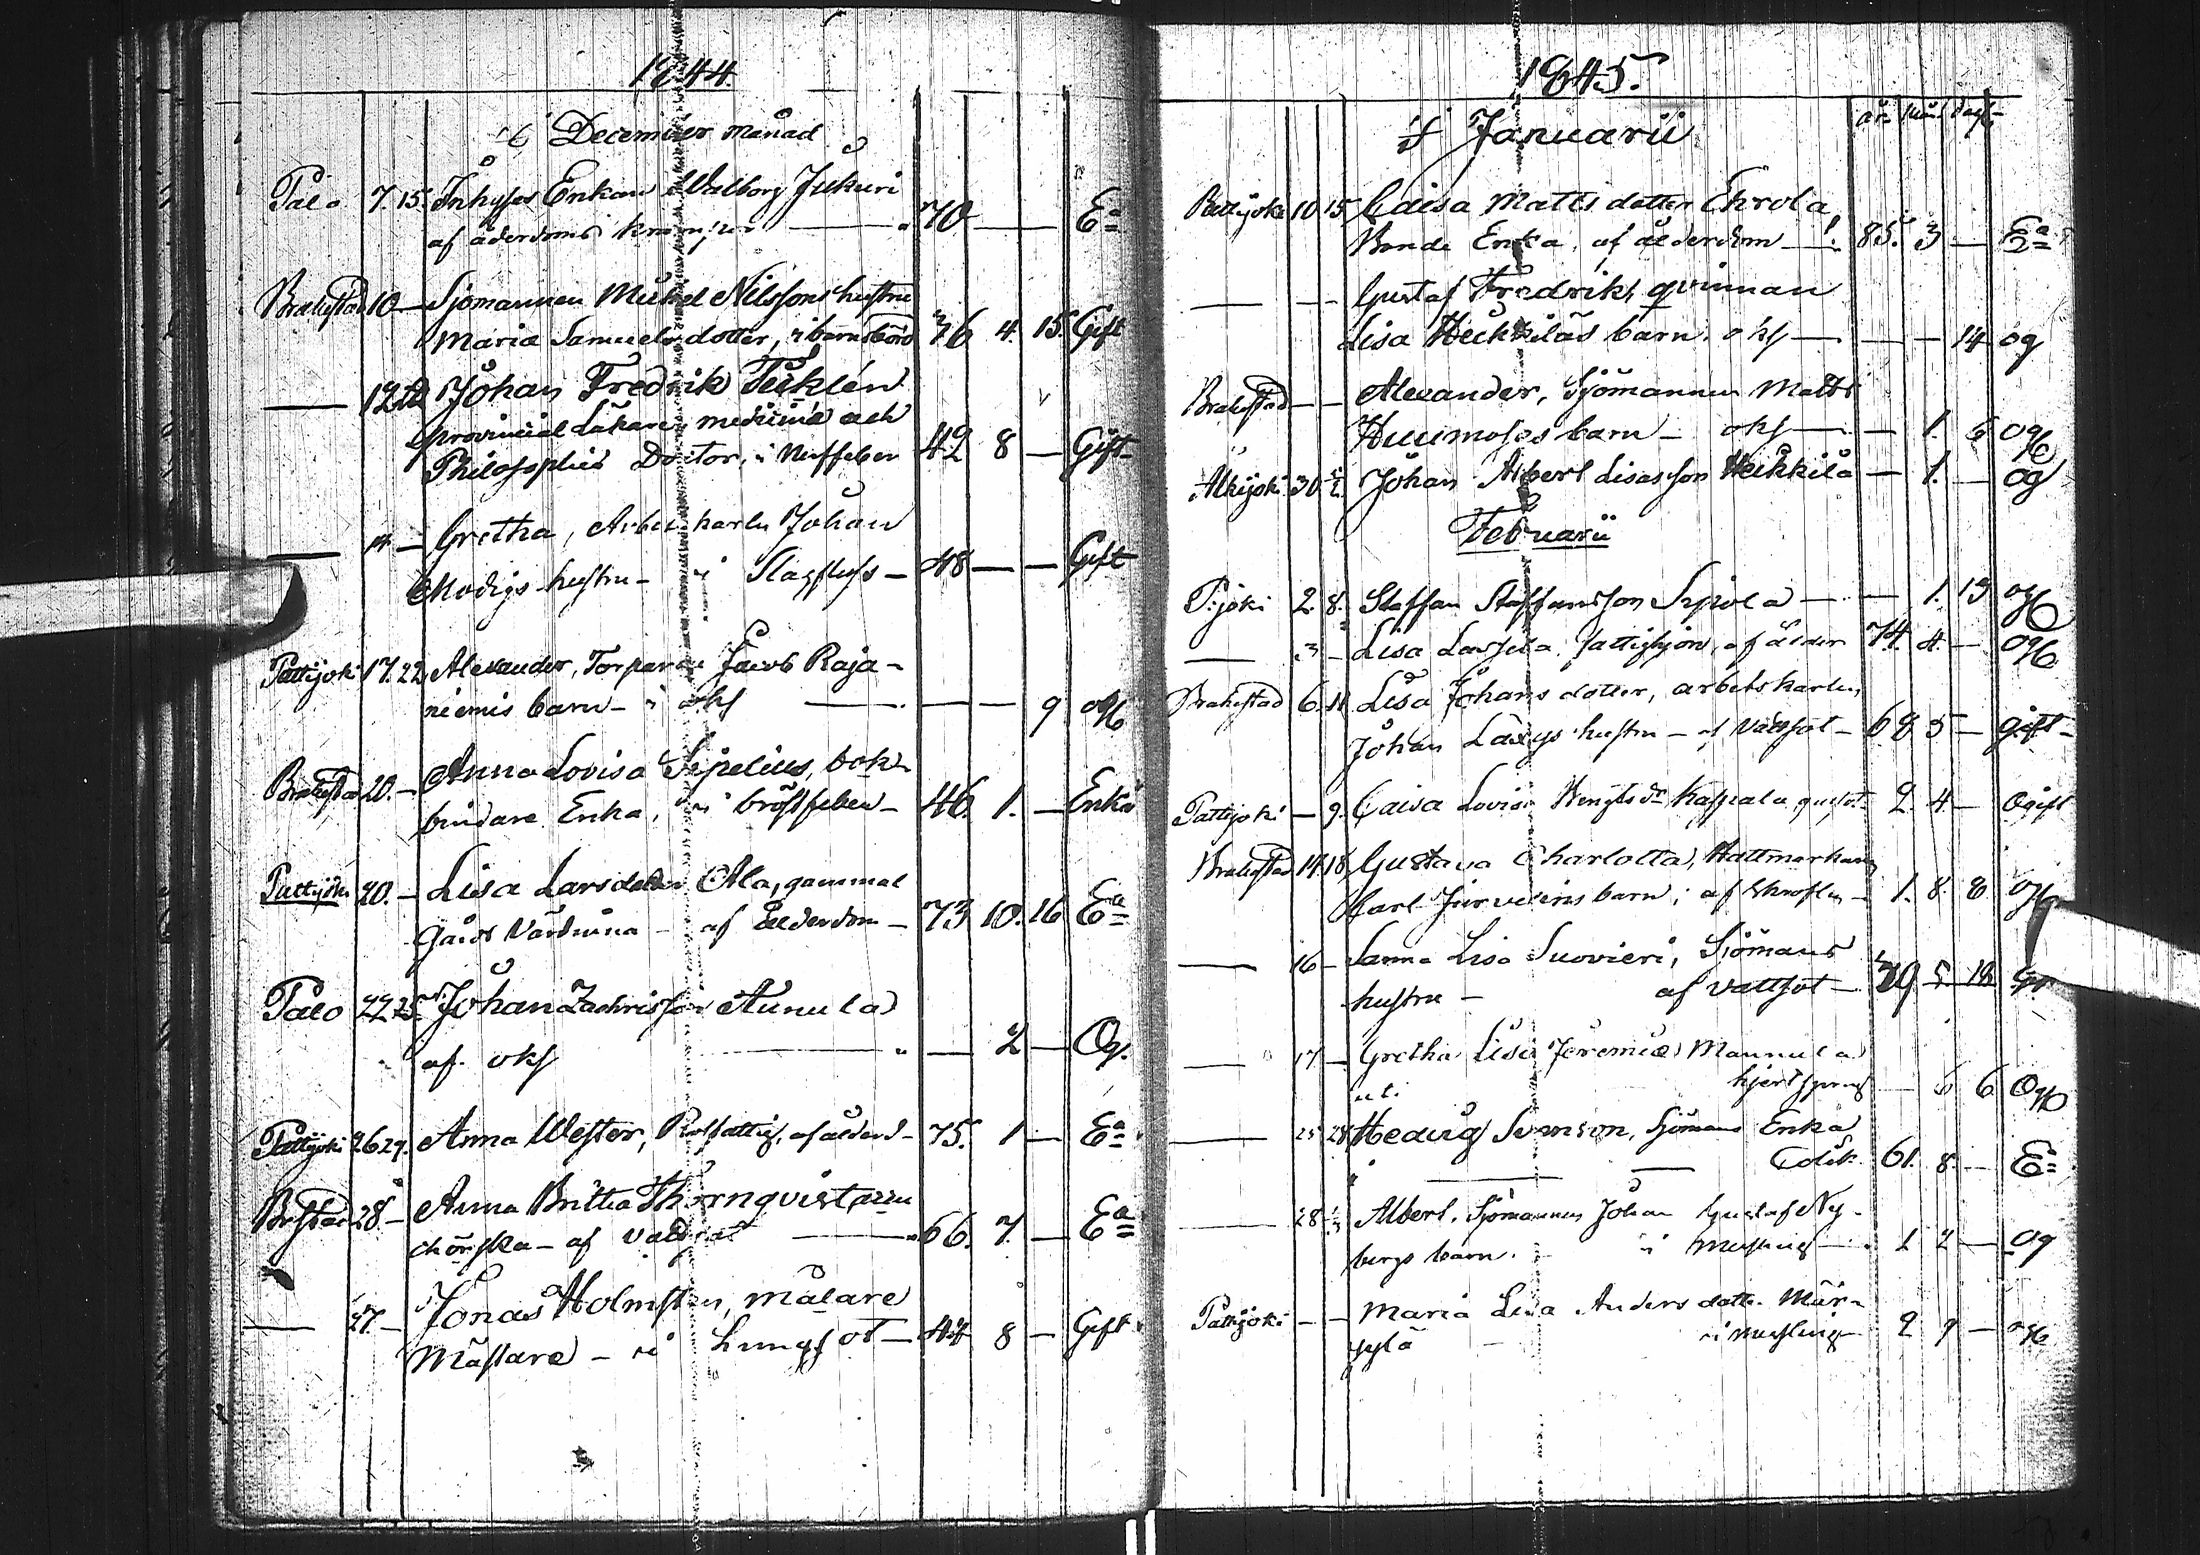 1844.
December månad
Palo 7. 15. Inhyses Enkan Walborg Jukuri
af ålderdoms krämpor 70 — — Ea
Brahestad 10 — Sjömannen Mickel Nilssons hustru
Maria Samuels dotter, i barnsbörd 36 4. 15. Gift
— 12 Johan Fredrik Ticklén
provincial Läkaren medicine och
Philosophie Doctor, i Nerffeber 42 8 — Gift
— 14 — Gretha, Arbets karln Johan
Modigs hustru — i Slagfluss — 48 — — Gift
Pattijoki 17. 22 Alexander, Torparen Jacob Raja-
niemis barn — i okj — — 9 og
Brahestad 20. — Anna Lovisa Sipelius, bok-
bindare Enka, i bröstfeber — 46. 1. — Enka
Pattijoki 20. — Lisa Larsdotter Ala, gammal
Gårds Värdinna — af ålderdom — 73 10. 16 Ea
Palo 22 25. Johan Zachrisson Aunula
af okj — 2 — Og.
Pattijoki 26 29. Anna Wester, Rotfattig, af ålderd — 75. 1 — Ea
Brhstad 28 — Anna Britta Thörnqvist
af 66. 7. — Ea
— 27. — Jonas Holmsten, målare
Mästare — i Lungsot — 44 8 — Gift
1845.
Januarii
år mån dag
Pattijoki 10 15 Caisa Matts dotter Ehrola
Bonde Enka, af ålderdom — 85. 3 — Ea
— — Gustaf Fredriks qvinnan
Lisa Heikkiläs barn. okj — — — 14 og
Brahestad — — Alexander, Sjömannen Matts
Huumosos barn — okj — — 1. 5 og
Alkijoki 30 Johan Albert Lisasson Heikkilä — 1. — og
Februarii
P:joki 2. 8. Staffan Staffansson Sipola — — 1. 13 og
— 3 — Lisa Lassila, fattighjon, af ålder 74. 4. — og
Brahestad 6. 11 Lisa Johans dotter, arbetskarln
Johan Laxys hustru — af Vattsot — 68 5 — gift —
Pattijoki — 9. Caisa Lovisa Bengtsdr Kaspala 2. 4 — Ogift
Brahestad 14. 18 Gustava Charlotta, Hattmakaren
Carl Jurvelins barn; af 1. 8. 8 og
— 16 — Sanna Lisa Suovieri, Sjömans
hustru — af Vattsot — 39 5 18
— 17 — Gretha Lisa Jeremiæ Mannula
hjertsprång — 6 6 Og
— 25 28 Hedvig Svenson, Sjömans Enka
Colik. 61. 8. — Ea
— 28 Albert. Sjömannen Johan Gustaf Ny-
bergs barn. i Messling — 1 2 — Og
Pattijoki — — Maria Lisa Anders dotter Mär-
sylä — i messling 2 9 — og